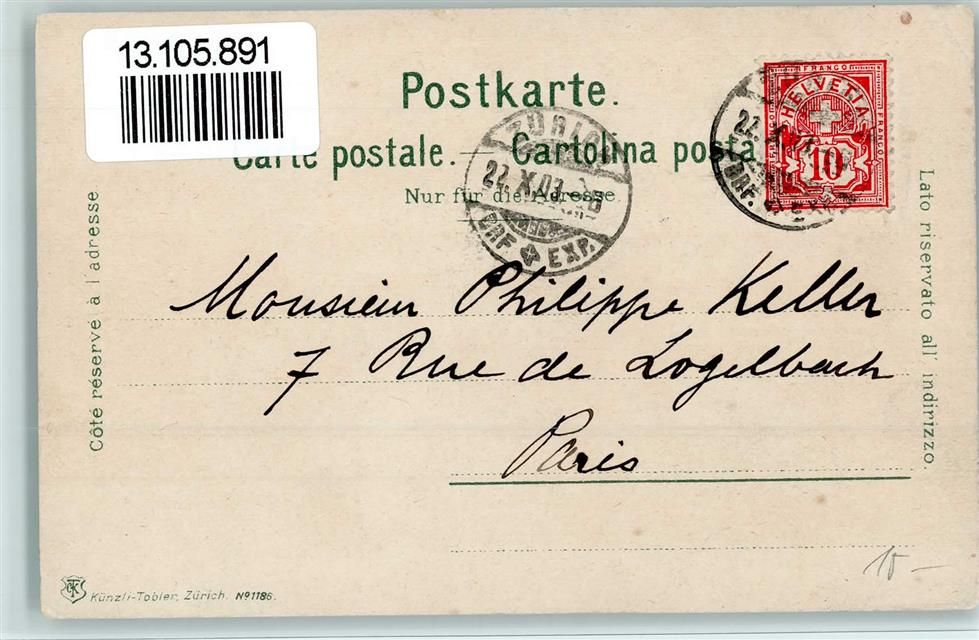 13.105.891
Postkarte.
Carte postale. — Cartolina posta
Nur für die Adresse
FRANCO
HELVETIA
FRANCO
10
ZÜRICH
22.X.01.
BRF. EXP.
22. X.
BRF.
Côté réservé à l'adresse
Lato riservato all' indirizzo
Monsieur Philippe Keller
7 Rue de Logelbach
Paris
10 –
Künzli-Tobler, Zürich. No 1186.